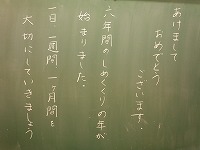 あけまして
おめでとう
ございます.
六年間のしめくくりの年が
始まりました.
一日一週間一ヶ月間を
大切にしていきましょう